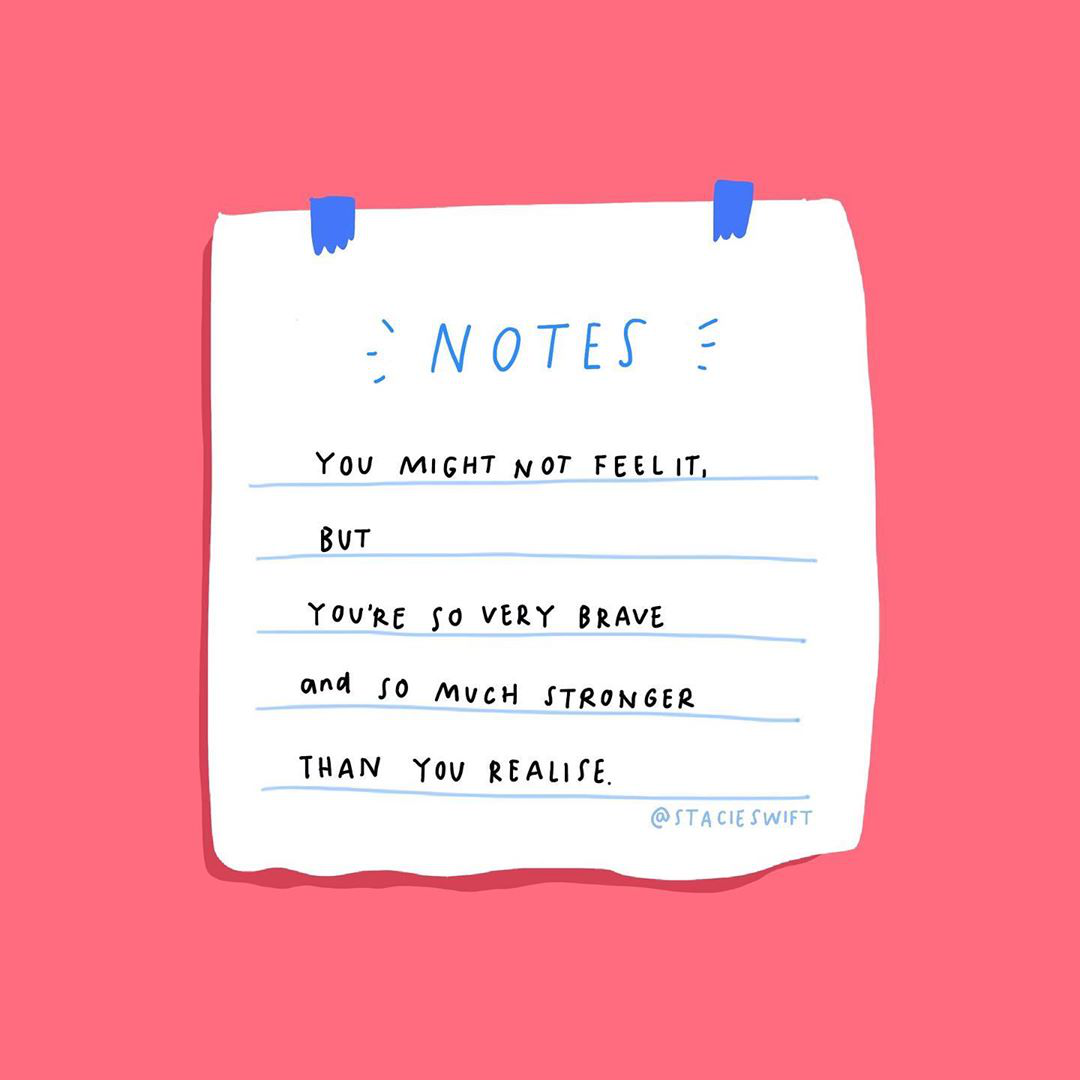 NOTES
YOU MIGHT NOT FEEL IT,
BUT
YOU'RE SO VERY BRAVE
and SO MUCH STRONGER
THAN YOU REALISE.
@STACIESWIFT